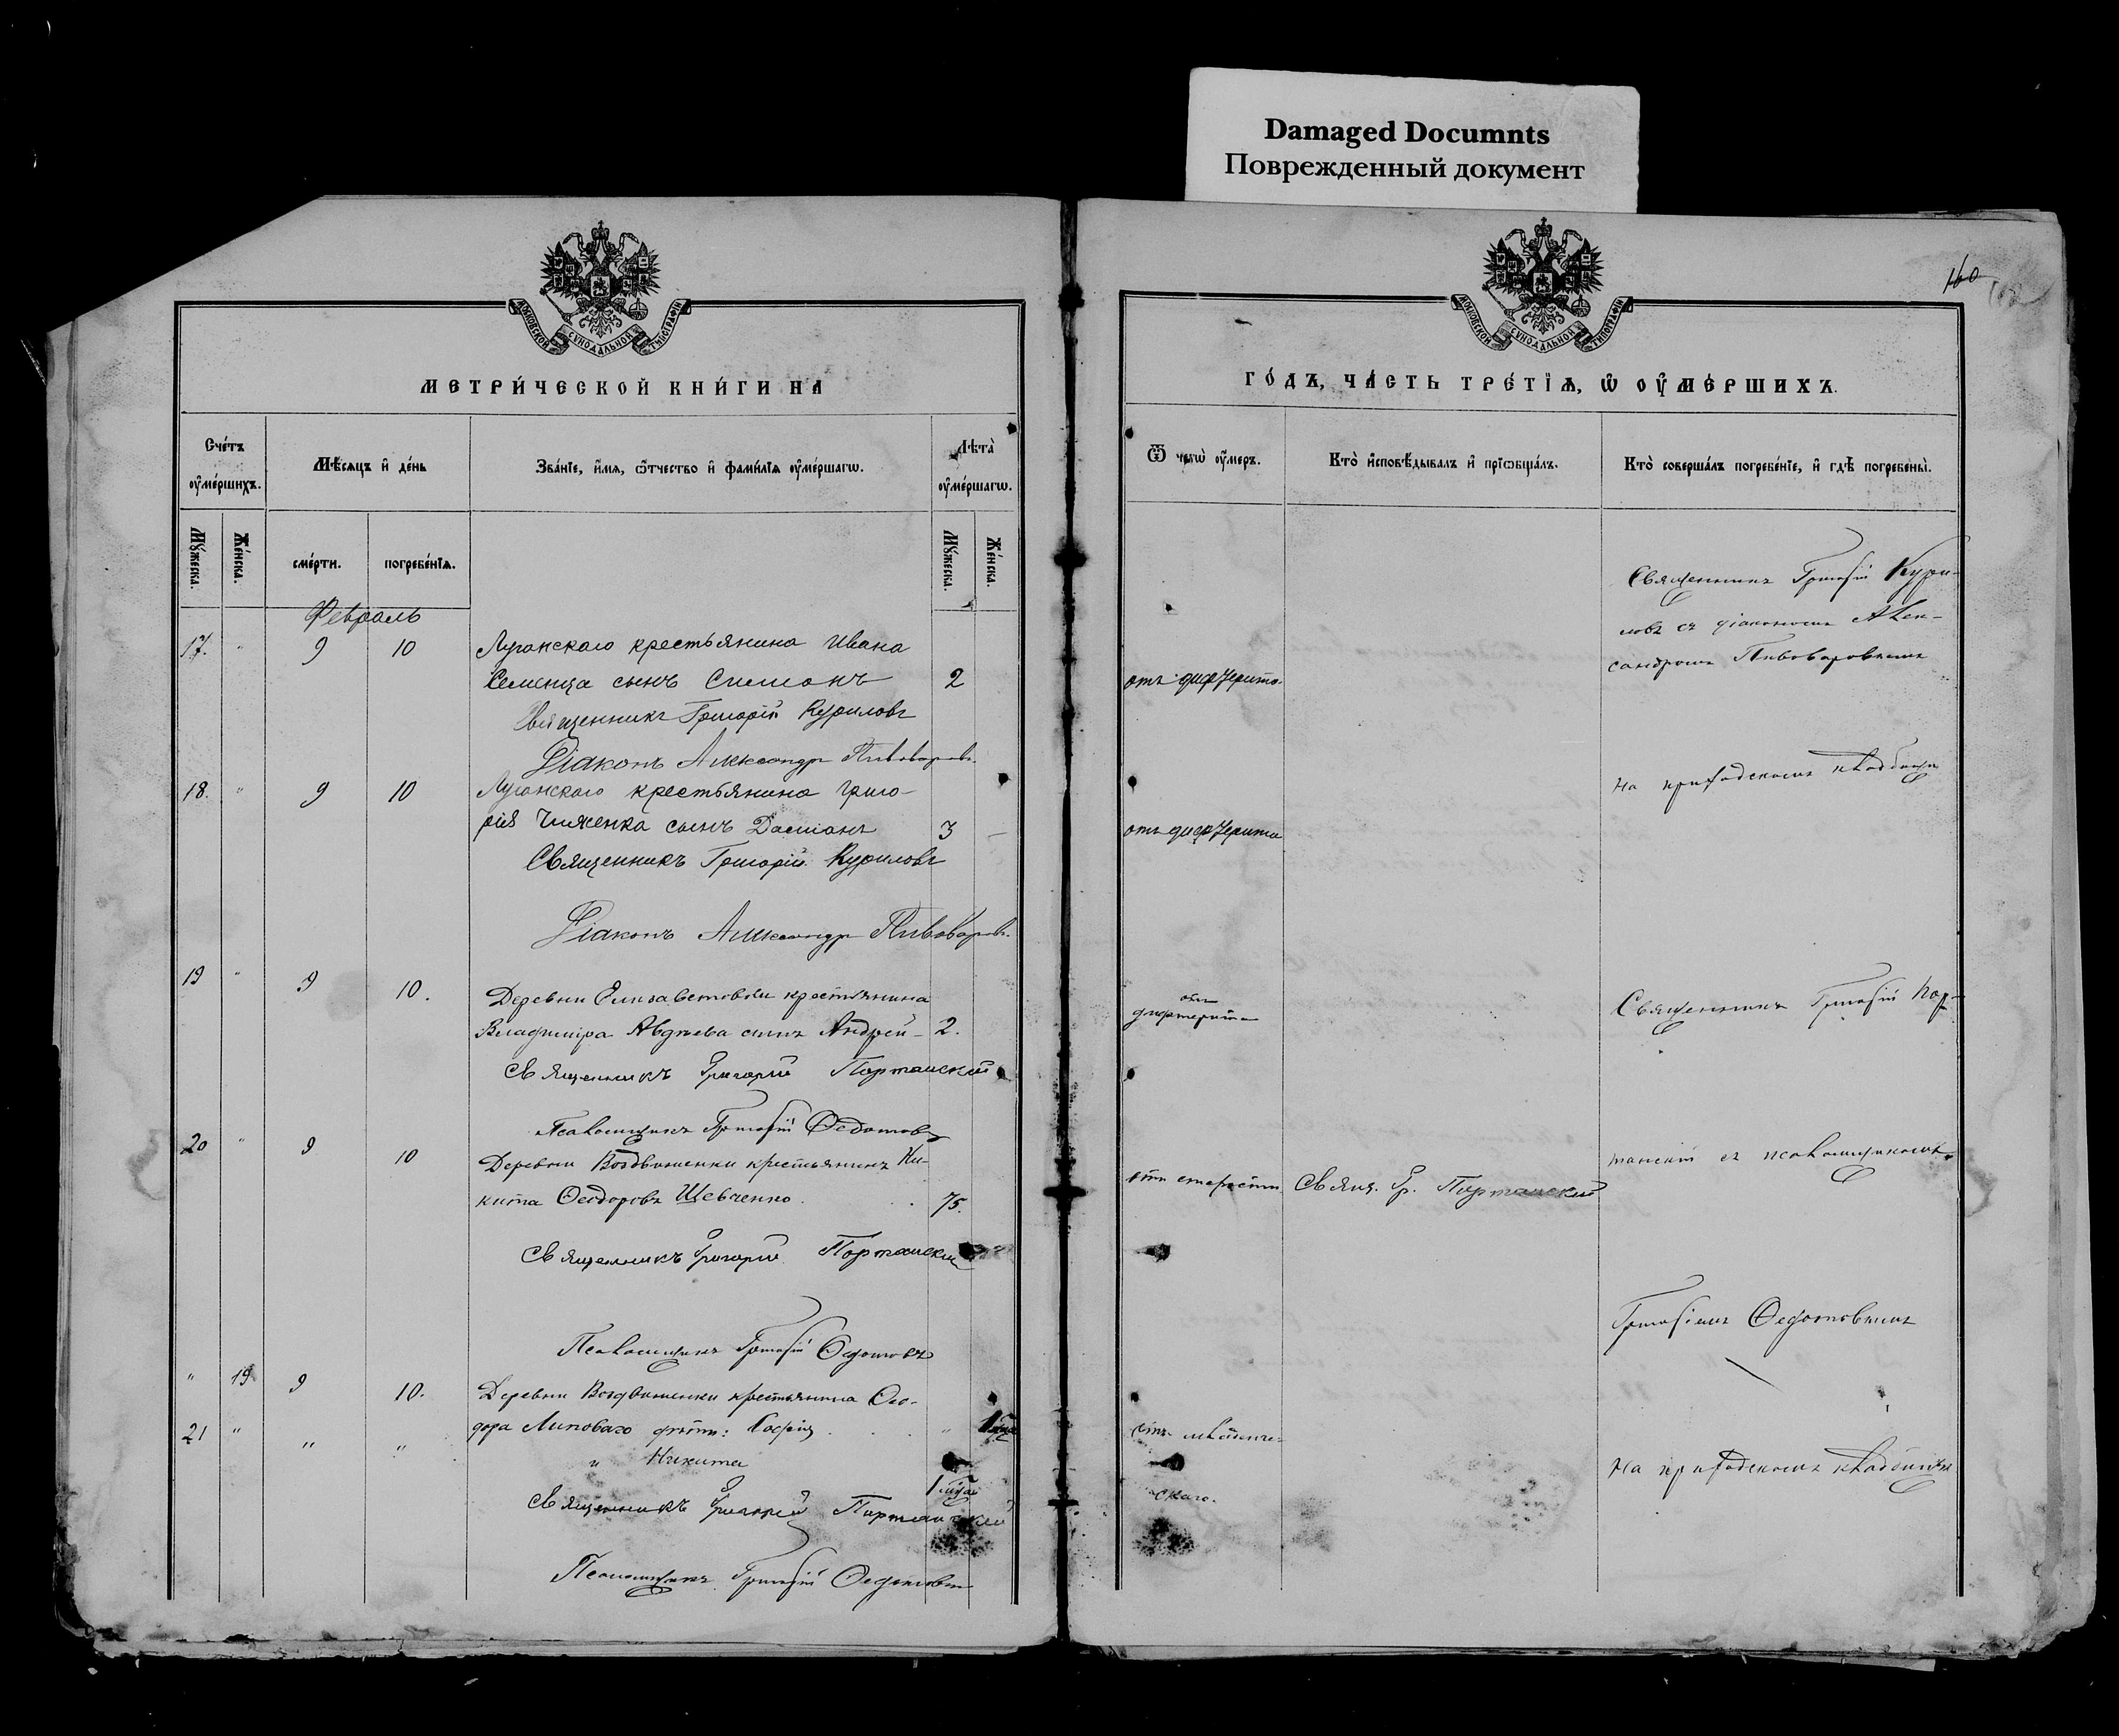 Damaged Documnts
Поврежденный документ
МОСКОВСКОЙ СѴНОДАЛЬНОЙ ТИПОГРАФІИ
МЕТРИ́ЧЕСКОЙ КНИ́ГИ НА
Сче́тъ ᲂу҆ме́ршихъ.
Мѣ́сяцъ и҆ де́нь
Зва́нїе, и҆́мя, ѻ҆́тчество и҆ фами́лїя ᲂу҆ме́ршагѡ.
Лѣ̀та ᲂу҆ме́ршагѡ.
Мꙋ́жеска.
Же́нска.
сме́рти.
погребе́нїя.
Мꙋ́жеска.
Же́нска.
Февраль
17. " 9 10 Луганскаго крестьянина Ивана
Семенца сынъ Симеонъ 2
Священникъ Григорій Куриловъ
Діаконъ Александръ Пивоваровъ
18. " 9 10 Луганскаго крестьянина Григо-
рія Чиженка сынъ Даміанъ 3 —
Священникъ Григорій Куриловъ
Діаконъ Александръ Пивоваровъ
19 " 9 10. Деревни Елизаветовки крестьянина
Владиміра Авдѣева сынъ Андрей - 2.
Священникъ Григорій Портанскій
Псаломщикъ Григорій Ѳедотовъ
20 " 9 10 Деревни Воздвиженки крестьянинъ Ни-
кита Ѳеодоровъ Шевченко. 75.
Священникъ Григорій Портанскій
Псаломщикъ Григорій Ѳедотовъ
" 19 9 10. Деревни Воздвиженки крестьянина Ѳео-
дора Липоваго дѣти: Софія "
21 " " " " Никита
Священникъ Григорій Портанскій
Псаломщикъ Григорій Ѳедотовъ
160
МОСКОВСКОЙ СѴНОДАЛЬНОЙ ТИПОГРАФІИ
ГО́ДЪ, ЧА́СТЬ ТРЕ́ТЇѦ, Ѡ҆ ОУ҆МЕ́РШИХЪ.
Ѿ чегѡ̀ ᲂу҆́меръ.
Кто̀ и҆сповѣ́дывалъ и҆ прїѡбща́лъ.
Кто̀ соверша́лъ погребе́нїе, и҆ гдѣ̀ погребены̀.
Священникъ Григорій Кури-
ловъ съ діакономъ Алек-
сандромъ Пивоваровымъ
отъ дифтерита
на приходскомъ кладбищѣ
отъ дифтерита
отъ
дифтерита
Священникъ Григорій Пор-
танскій съ псаломщикомъ
отъ старости Свящ. Гр. Портанскій
Григоріемъ Ѳедотовымъ
отъ младенче-
скаго.
на приходскомъ кладбищѣ